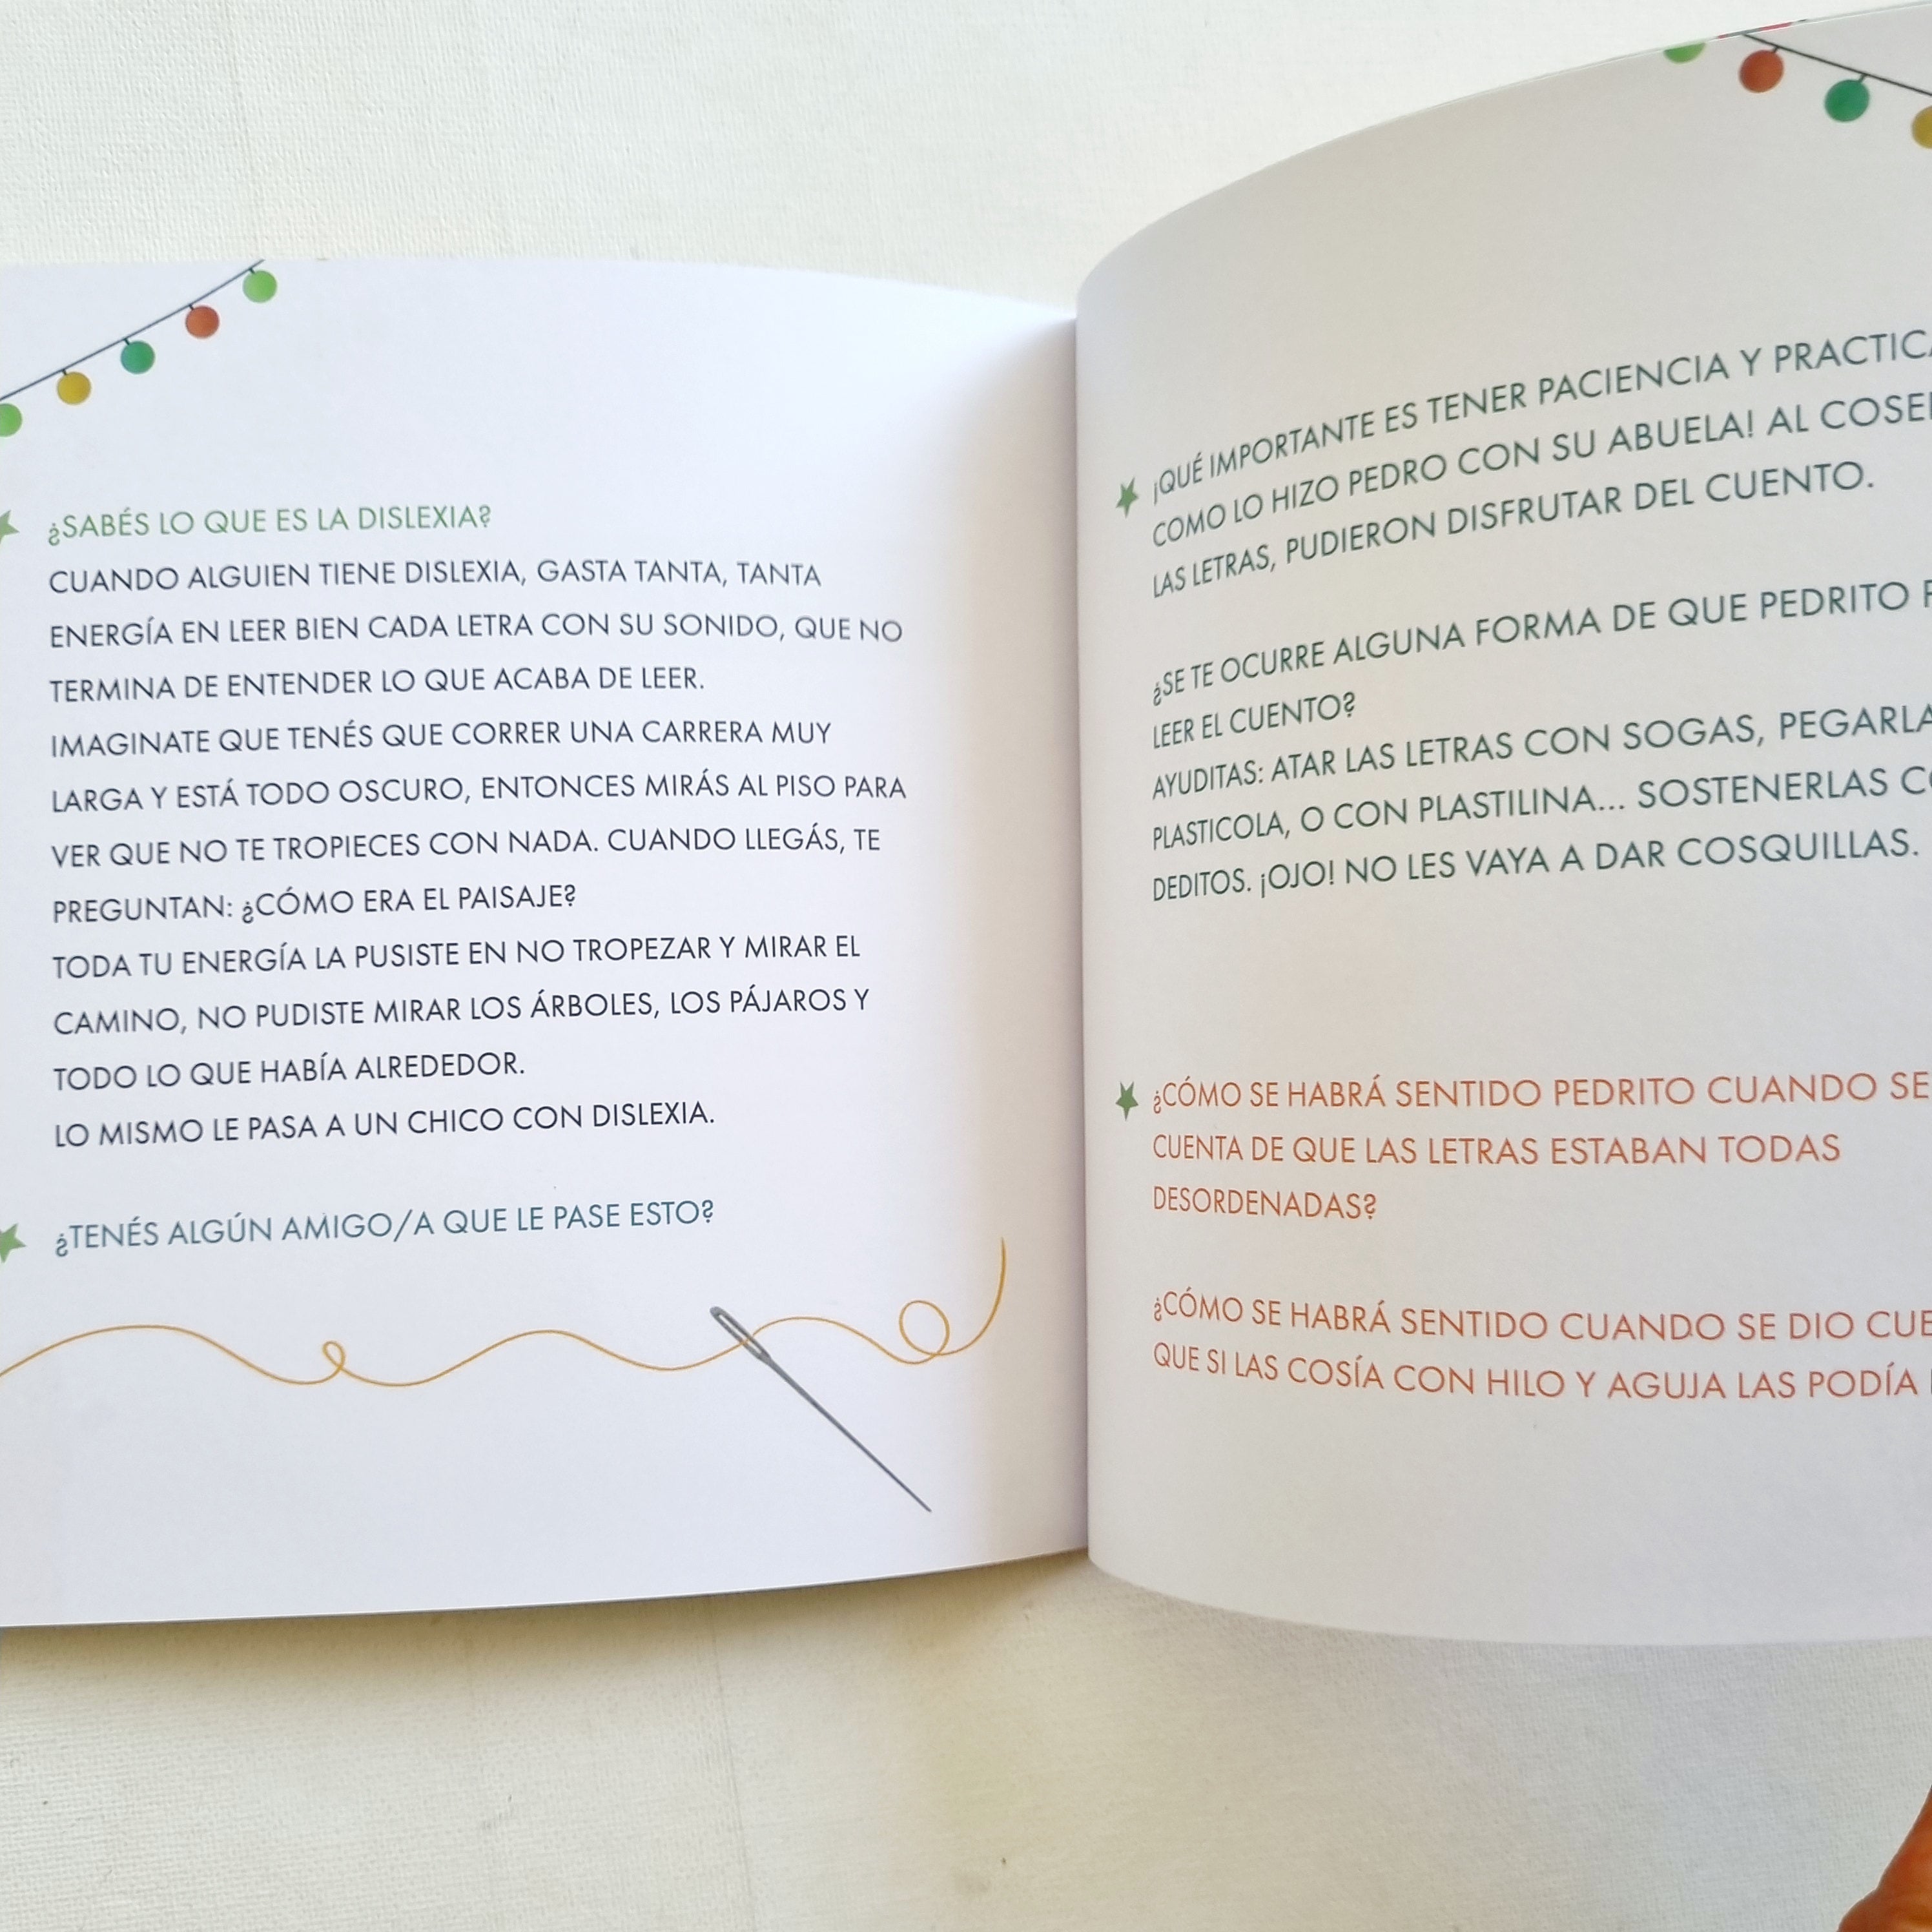 ¿SABÉS LO QUE ES LA DISLEXIA?
CUANDO ALGUIEN TIENE DISLEXIA, GASTA TANTA, TANTA
ENERGÍA EN LEER BIEN CADA LETRA CON SU SONIDO, QUE NO
TERMINA DE ENTENDER LO QUE ACABA DE LEER.
IMAGINATE QUE TENÉS QUE CORRER UNA CARRERA MUY
LARGA Y ESTÁ TODO OSCURO, ENTONCES MIRÁS AL PISO PARA
VER QUE NO TE TROPIECES CON NADA. CUANDO LLEGÁS, TE
PREGUNTAN: ¿CÓMO ERA EL PAISAJE?
TODA TU ENERGÍA LA PUSISTE EN NO TROPEZAR Y MIRAR EL
CAMINO, NO PUDISTE MIRAR LOS ÁRBOLES, LOS PÁJAROS Y
TODO LO QUE HABÍA ALREDEDOR.
LO MISMO LE PASA A UN CHICO CON DISLEXIA.
¿TENÉS ALGÚN AMIGO/A QUE LE PASE ESTO?
¡QUÉ IMPORTANTE ES TENER PACIENCIA Y
COMO LO HIZO PEDRO CON SU ABUELA! AL
LAS LETRAS, PUDIERON DISFRUTAR DEL CUENTO.
¿SE TE OCURRE ALGUNA FORMA DE QUE PEDRITO
LEER EL CUENTO?
AYUDITAS: ATAR LAS LETRAS CON SOGAS,
PLASTICOLA, O CON PLASTILINA... SOSTENERLAS
DEDITOS. ¡OJO! NO LES VAYA A DAR COSQUILLAS.
¿CÓMO SE HABRÁ SENTIDO PEDRITO CUANDO SE
CUENTA DE QUE LAS LETRAS ESTABAN TODAS
DESORDENADAS?
¿CÓMO SE HABRÁ SENTIDO CUANDO SE DIO
QUE SI LAS COSÍA CON HILO Y AGUJA LAS PODÍA